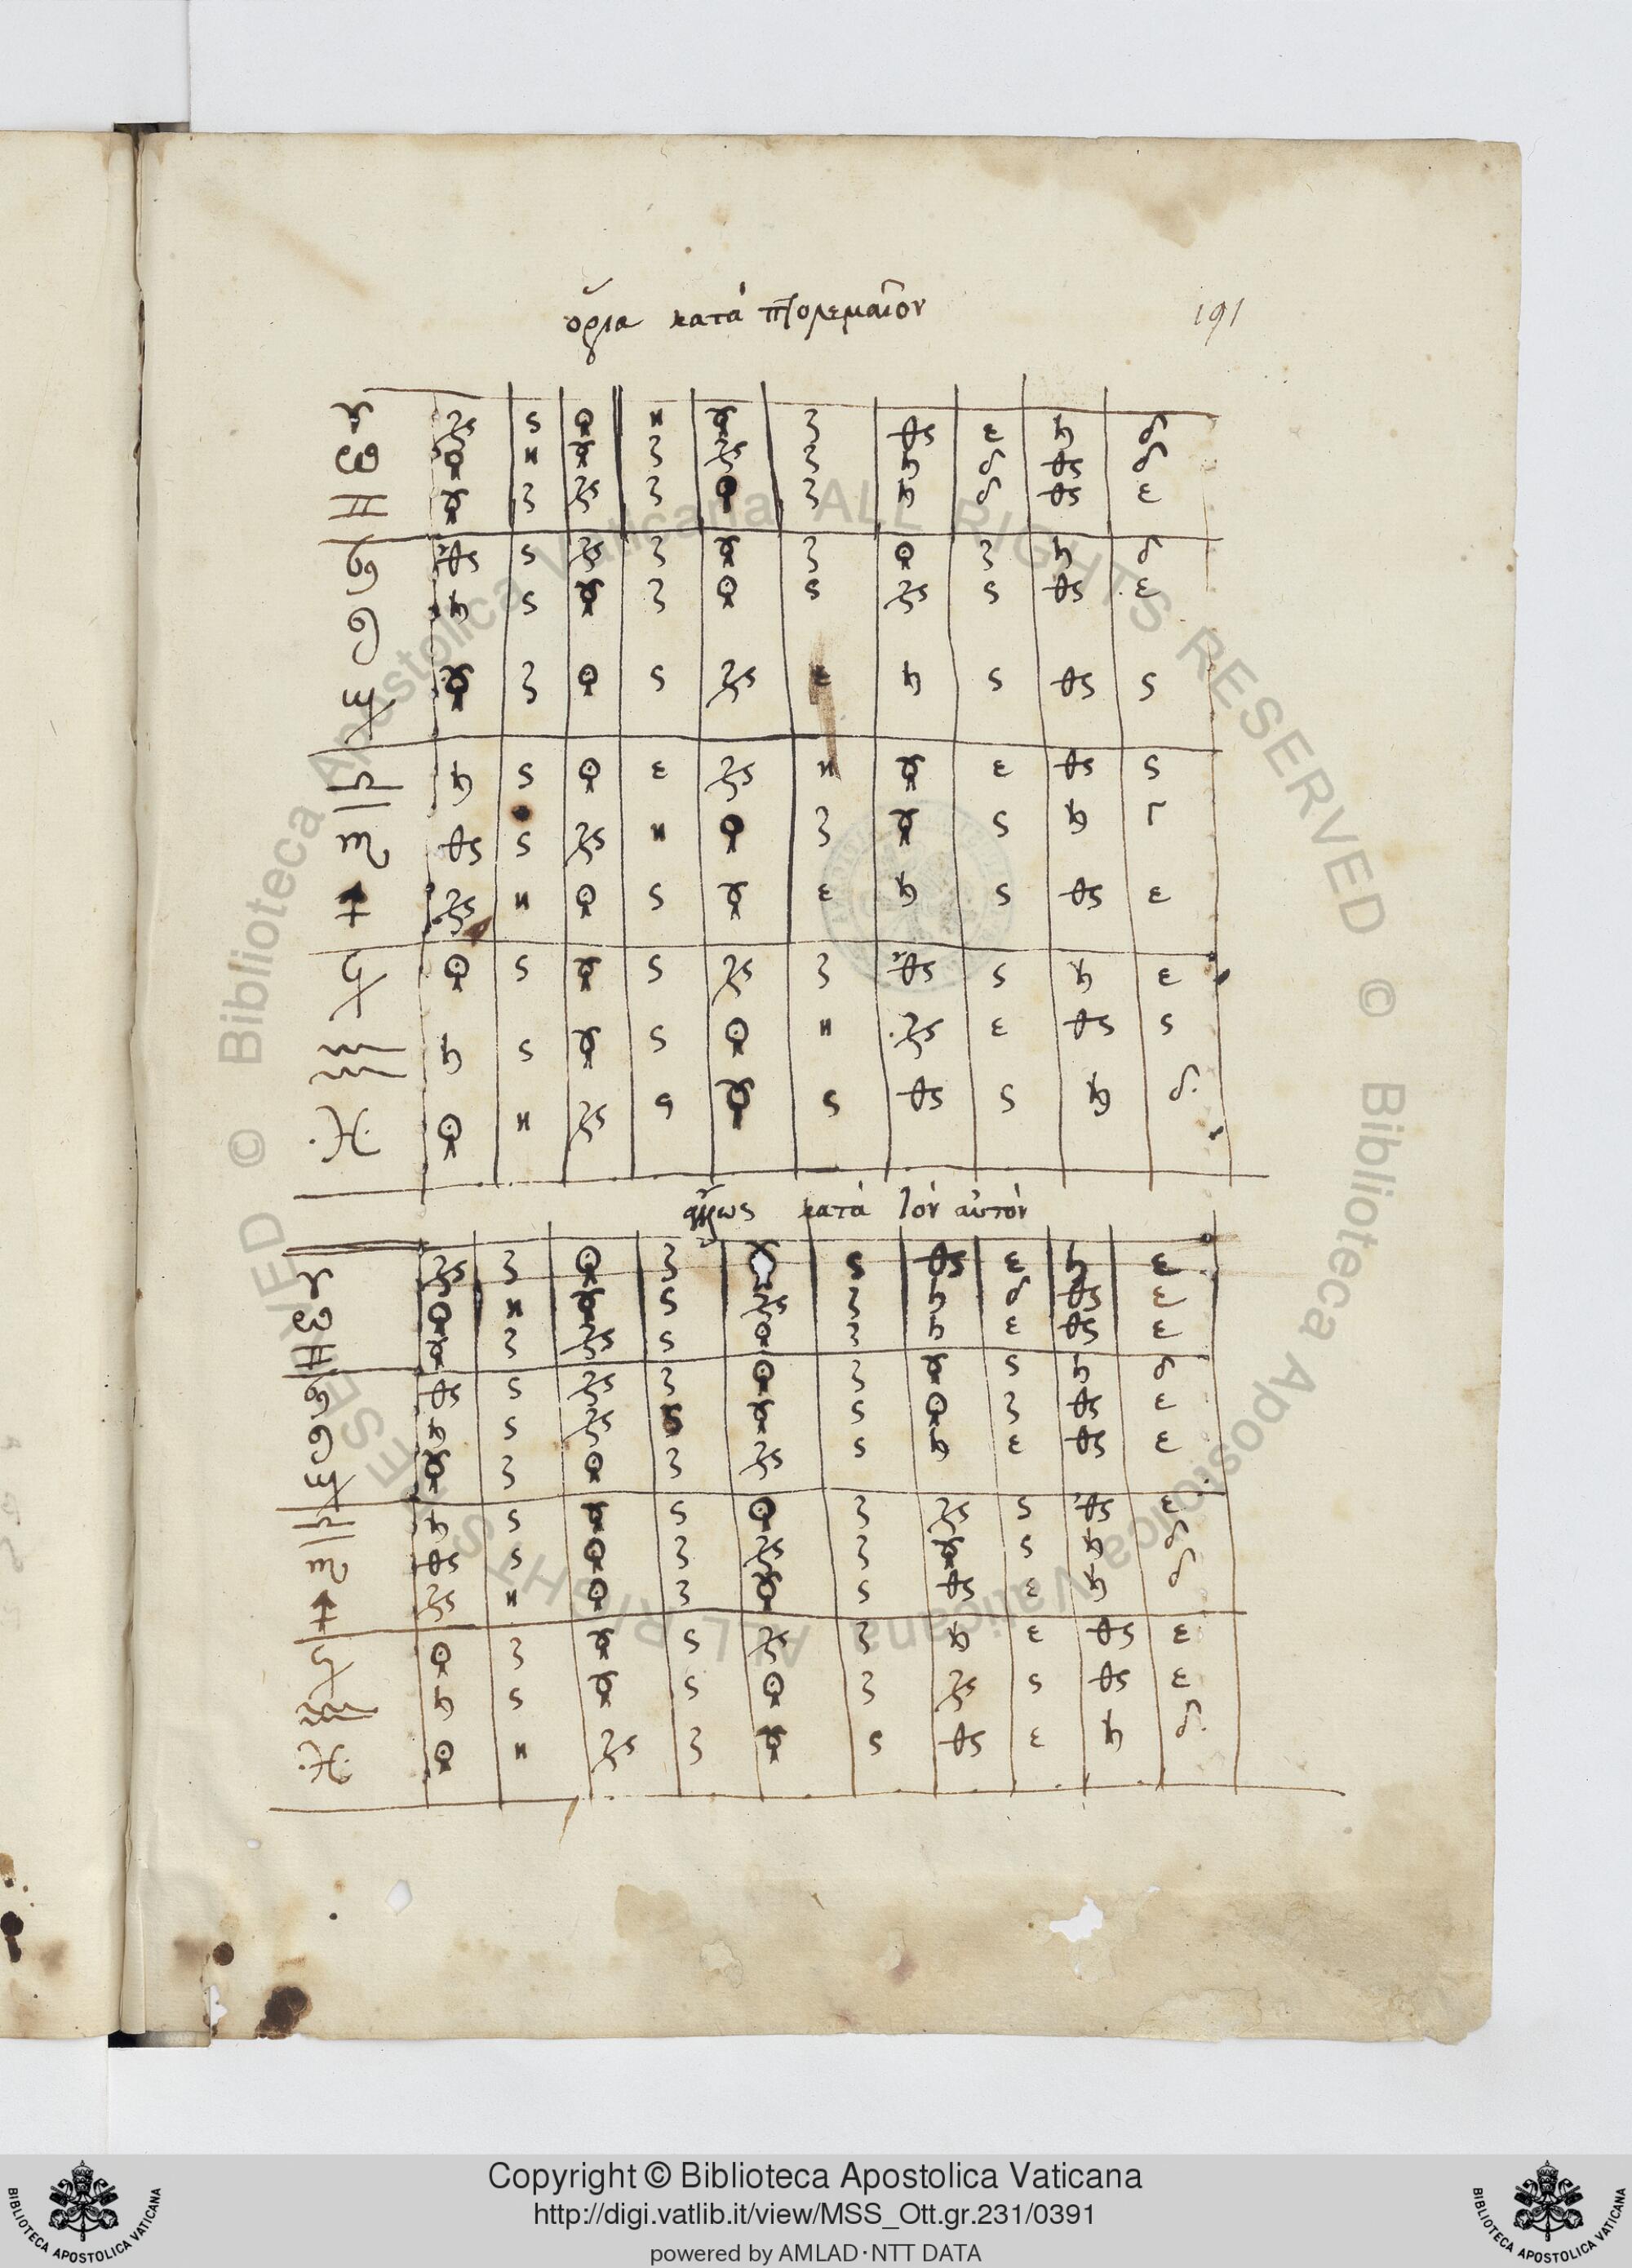 ὅρια κατὰ πτολεμαῖον
191
♈ ♃ ϛ ♀ η ☿ ζ ♂ ε ♄ δ
♉ ♀ η ☿ ζ ♃ ζ ♄ δ ♂ δ
♊ ☿ ζ ♃ ζ ♀ ζ ♄ δ ♂ ε
♋ ♂ ϛ ♃ ζ ☿ ζ ♀ ζ ♄ δ
♌ ♄ ϛ ☿ ζ ♀ ϛ ♃ ϛ ♂ ε
♍ ☿ ζ ♀ ϛ ♃ ε ♄ ϛ ♂ ϛ
♎ ♄ ϛ ♀ ε ♃ η ☿ ε ♂ ϛ
♏ ♂ ϛ ♃ η ♀ ζ ☿ ϛ ♄ γ
♐ ♃ η ♀ ϛ ☿ ε ♄ ϛ ♂ ε
♑ ♀ ϛ ☿ ϛ ♃ ζ ♂ ϛ ♄ ε
♒ ♄ ϛ ☿ ϛ ♀ η ♃ ε ♂ ϛ
♓ ♀ η ♃ ϛ ☿ ϛ ♂ ϛ ♄ δ
ἄλλως κατὰ τὸν αὐτὸν
♈ ♃ ζ ♀ ζ ☿ ϛ ♂ ε ♄ ε
♉ ♀ η ☿ ϛ ♃ ζ ♄ δ ♂ ε
♊ ☿ ζ ♃ ϛ ♀ ζ ♄ ε ♂ ε
♋ ♂ ϛ ♃ ζ ♀ ζ ☿ ϛ ♄ δ
♌ ♄ ϛ ♃ ϛ ☿ ϛ ♀ ζ ♂ ε
♍ ☿ ζ ♀ ζ ♃ ϛ ♄ ε ♂ ε
♎ ♄ ϛ ☿ ϛ ♀ ζ ♃ ϛ ♂ ε
♏ ♂ ϛ ♀ ζ ♃ ζ ☿ ϛ ♄ δ
♐ ♃ η ♀ ζ ☿ ϛ ♂ ε ♄ δ
♑ ♀ ζ ☿ ϛ ♃ ζ ♄ ε ♂ ε
♒ ♄ ϛ ☿ ϛ ♀ ζ ♃ ϛ ♂ ε
♓ ♀ η ♃ ζ ☿ ϛ ♂ ε ♄ δ
© Biblioteca Apostolica Vaticana ALL RIGHTS RESERVED © Biblioteca Apostolica Vaticana ALL RIGHTS RESERVED
Copyright © Biblioteca Apostolica Vaticana
http://digi.vatlib.it/view/MSS_Ott.gr.231/0391
powered by AMLAD·NTT DATA
BIBLIOTECA APOSTOLICA VATICANA
BIBLIOTECA APOSTOLICA VATICANA